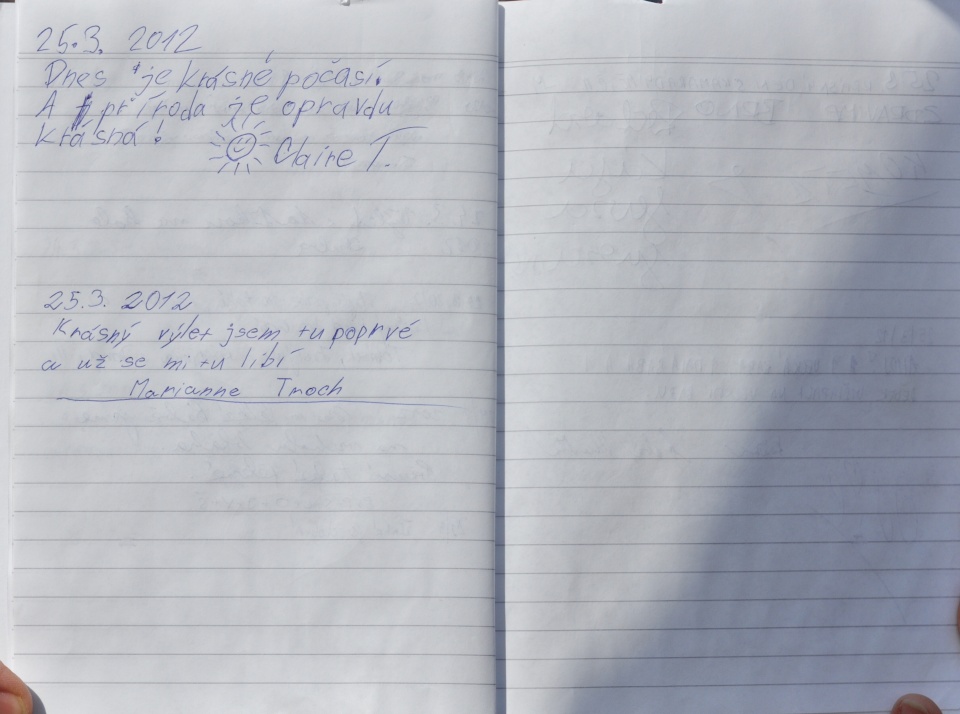 25.3. 2012
Dnes je krásné počasí.
A příroda je opravdu
krásná!
Claire T.
25.3. 2012
Krásný výlet jsem tu poprvé
a už se mi tu líbí
Marianne Troch